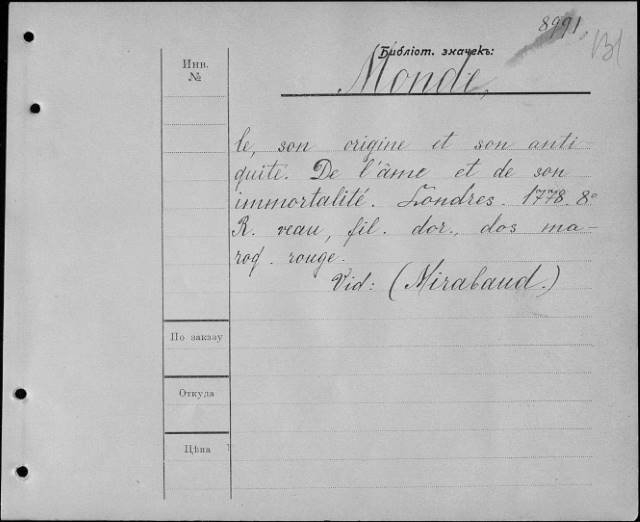 8991.
131
Библіот. значекъ:
Инв.
№
Monde,
le, son origine et son anti
quite. De l'âme et de son
immortalité. Londres. 1778. 8°
R. veau, fil. dor., dos ma-
roq. rouge.
Vid: (Mirabaud.)
По заказу
Откуда
Цѣна